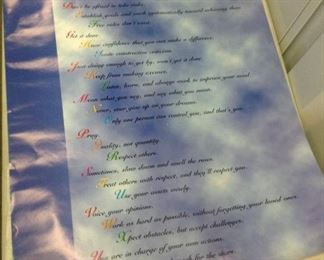 Don't be afraid to take risks.
Establish goals and work systematically toward achieving them.
Free rides don't exist.
Get it done.
Have confidence that you can make a difference.
Invite constructive criticism.
Just doing enough to get by, won't get it done.
Keep from making excuses.
Listen, learn, and always work to improve your mind.
Mean what you say, and say what you mean.
Never, ever give up on your dreams.
Only one person can control you, and that's you.
Pray.
Quality, not quantity.
Respect others.
Sometimes, slow down and smell the roses.
Treat others with respect, and they'll respect you.
Use your assets wisely.
Voice your opinions.
Work as hard as possible, without forgetting your loved ones.
Xpect obstacles, but accept challenges.
You are in charge of your own actions.
reach for the stars.